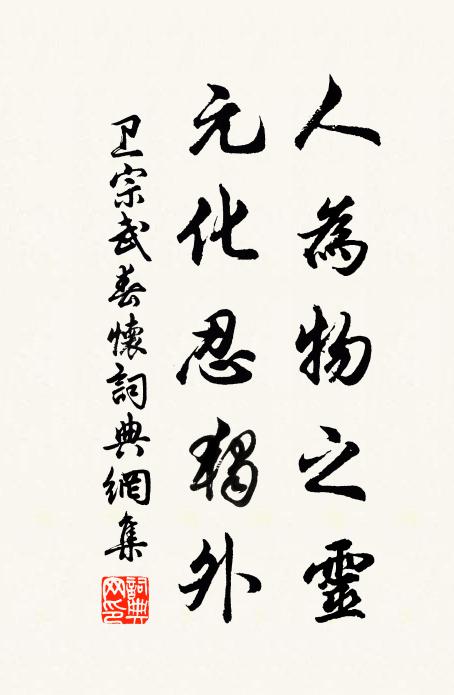 人為物之靈
元化忍獨外
卫宗武春懷詞典網集
詞典網印